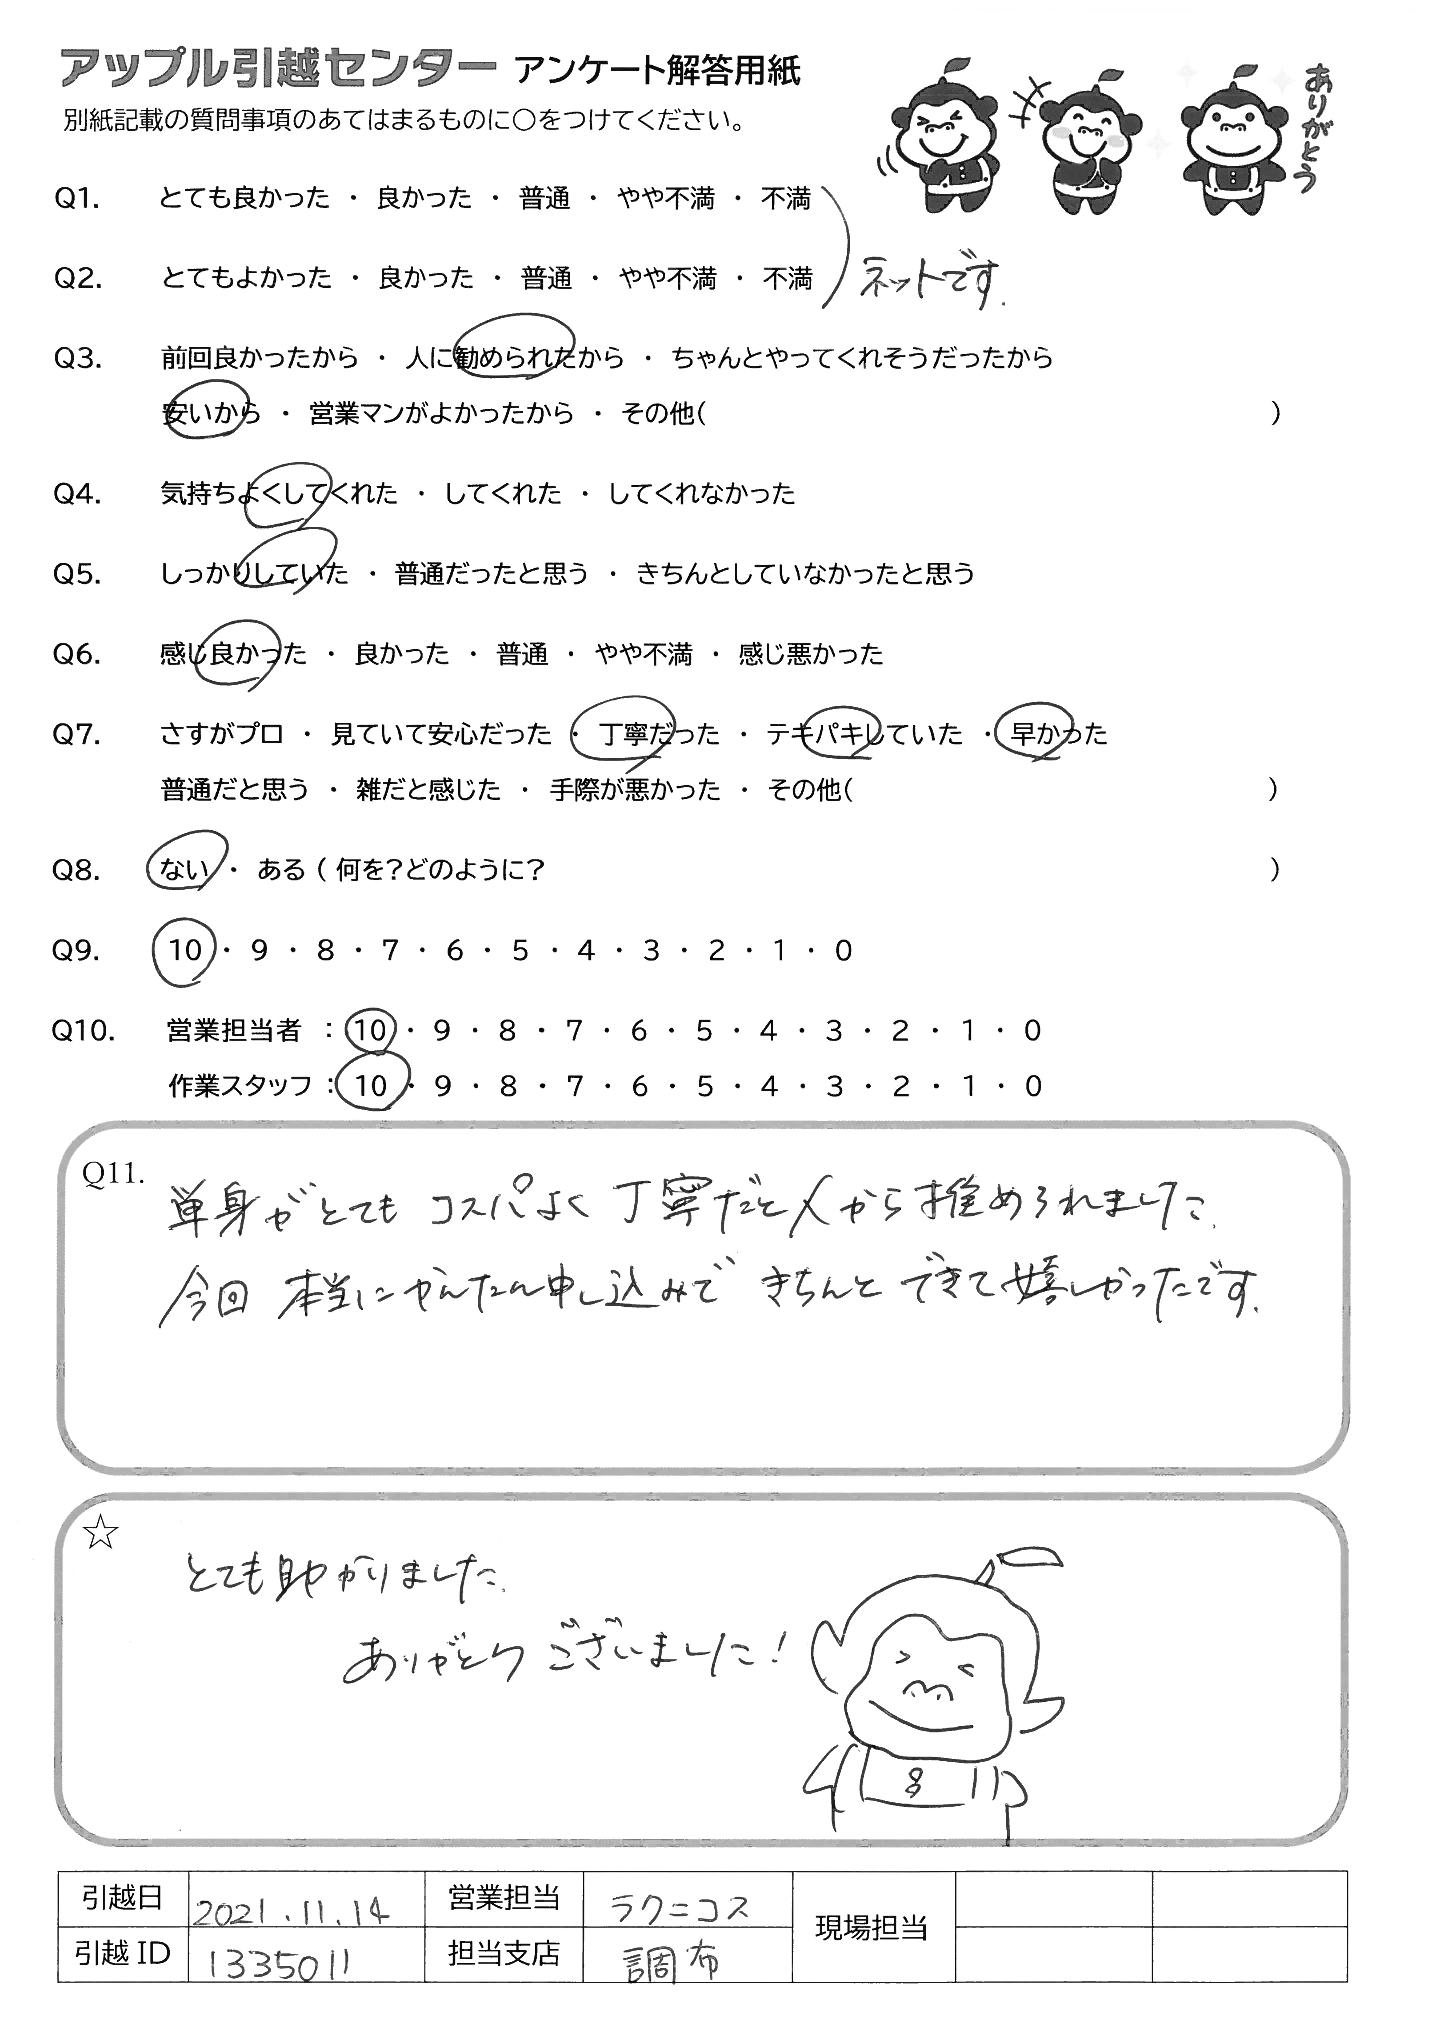 アップル引越センター アンケート解答用紙
別紙記載の質問事項のあてはまるものに○をつけてください。
ありがとう
Q1. とても良かった ・ 良かった ・ 普通 ・ やや不満 ・ 不満
Q2. とてもよかった ・ 良かった ・ 普通 ・ やや不満 ・ 不満
ネットです.
Q3. 前回良かったから ・ 人に勧められたから ・ ちゃんとやってくれそうだったから
安いから ・ 営業マンがよかったから ・ その他( )
Q4. 気持ちよくしてくれた ・ してくれた ・ してくれなかった
Q5. しっかりしていた ・ 普通だったと思う ・ きちんとしていなかったと思う
Q6. 感じ良かった ・ 良かった ・ 普通 ・ やや不満 ・ 感じ悪かった
Q7. さすがプロ ・ 見ていて安心だった ・ 丁寧だった ・ テキパキしていた ・ 早かった
普通だと思う ・ 雑だと感じた ・ 手際が悪かった ・ その他( )
Q8. ない ・ ある ( 何を?どのように? )
Q9. 10 ・ 9 ・ 8 ・ 7 ・ 6 ・ 5 ・ 4 ・ 3 ・ 2 ・ 1 ・ 0
Q10. 営業担当者 : 10 ・ 9 ・ 8 ・ 7 ・ 6 ・ 5 ・ 4 ・ 3 ・ 2 ・ 1 ・ 0
作業スタッフ : 10 ・ 9 ・ 8 ・ 7 ・ 6 ・ 5 ・ 4 ・ 3 ・ 2 ・ 1 ・ 0
Q11. 単身がとても コスパよく 丁寧だと人から推められました.
今回 本当にかんたん申し込みで きちんと できて嬉しかったです.
☆
とても助かりました.
ありがとう ございました!
引越日 2021.11.14 営業担当 ラクニコス 現場担当
引越 ID 1335011 担当支店 調布